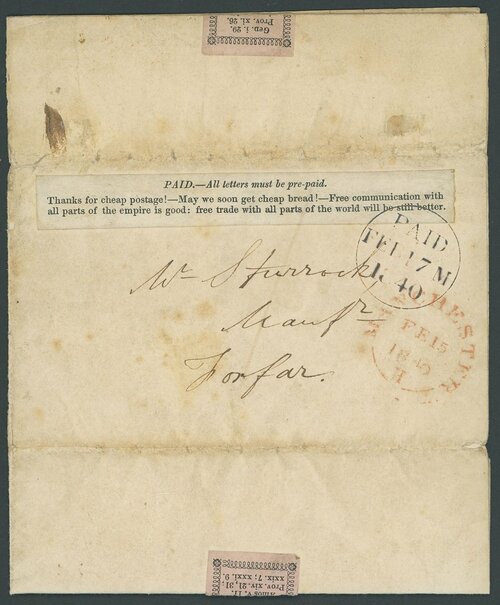 Gen. i. 29.
Prov. xi. 26.
PAID.—All letters must be pre-paid.
Thanks for cheap postage!—May we soon get cheap bread!—Free communication with
all parts of the empire is good: free trade with all parts of the world will be still better.
PAID
FE 17 M
1840
Mr Sturrock
Manfr
Forfar.
MANCHESTER
FE 15
1840
H
Amos v. 11.
Prov. xiv. 21, 31,
xxix. 7; xxxi. 9.